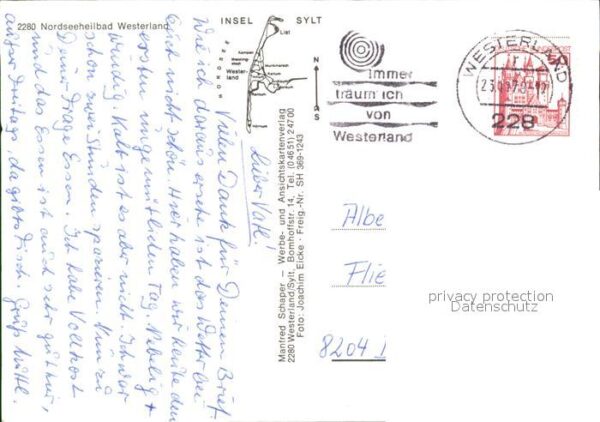 2280 Nordseeheilbad Westerland
INSEL SYLT
List
Kampen
Westerland
Keitum
NORDSEE
N
S
Immer
träum ich
von
Westerland
WESTERLAND
228
Manfred Schaper — Werbe- und Ansichtskartenverlag
2280 Westerland/Sylt, Bomhoffstr. 14, Tel. (04651) 24700
Foto: Joachim Eicke · Freig.-Nr. SH 369-1243
Lieber Vati.
Vielen Dank für Deinen Brief.
Wie ich daraus ersehe ist das Wetter bei
Euch nicht schön. Hier haben wir heute den
ersten ungemütlichen Tag. Neblig +
windig. Kalt ist es aber nicht. Ich war
schon zwei Stunden spazieren. Nun zu
Deiner Frage Essen. Ich habe Vollkost
und das Essen ist auch sehr gut hier,
außer Freitag, da gibts Fisch. Gruß Mutti.
Albe
Flie
8204
privacy protection
Datenschutz